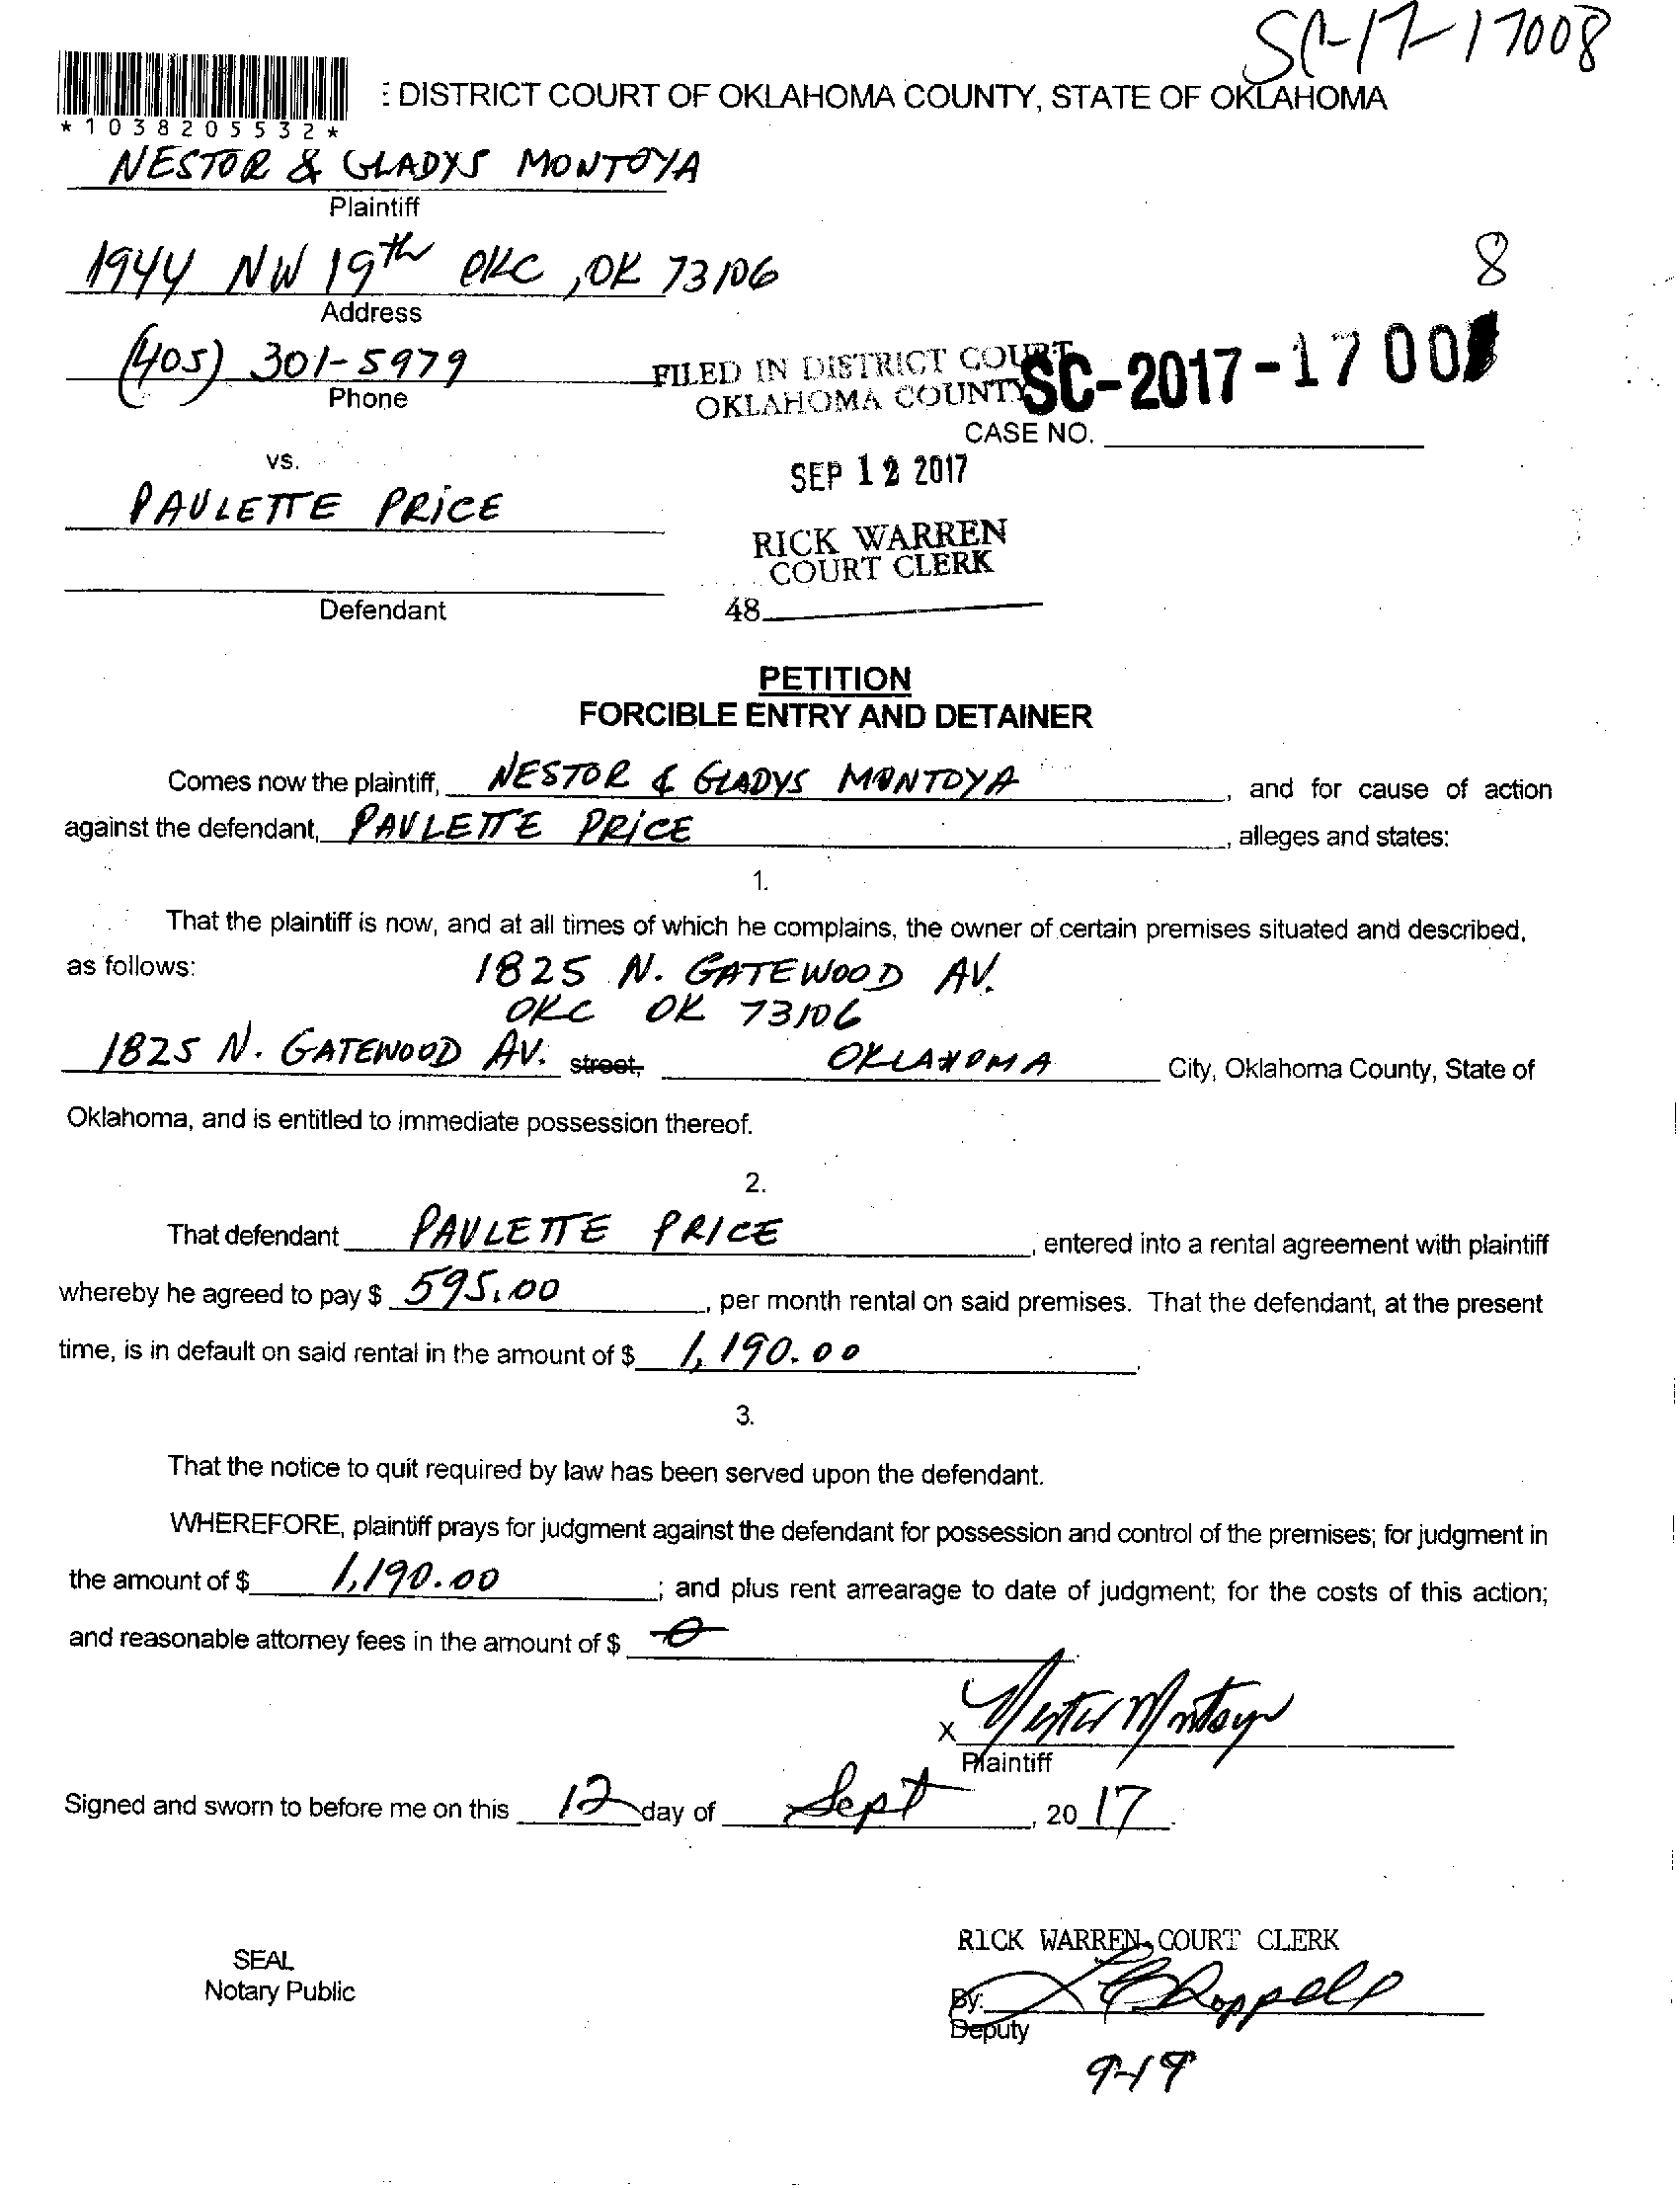 SC-17-17008
: DISTRICT COURT OF OKLAHOMA COUNTY, STATE OF OKLAHOMA
*1038205532*
NESTOR & GLADYS MONTOYA
Plaintiff
1944 NW 19th OKC, OK 73106
8
Address
(405) 301-5979
Phone
FILED IN DISTRICT COURT
OKLAHOMA COUNTY
SC-2017-1700
CASE NO.
vs.
SEP 12 2017
PAULETTE PRICE
RICK WARREN
COURT CLERK
Defendant
48
PETITION
FORCIBLE ENTRY AND DETAINER
Comes now the plaintiff, NESTOR & GLADYS MONTOYA, and for cause of action
against the defendant, PAULETTE PRICE, alleges and states:
1.
That the plaintiff is now, and at all times of which he complains, the owner of certain premises situated and described,
as follows: 1825 N. GATEWOOD AV.
OKC OK 73106
1825 N. GATEWOOD AV. street, OKLAHOMA City, Oklahoma County, State of
Oklahoma, and is entitled to immediate possession thereof.
2.
That defendant PAULETTE PRICE, entered into a rental agreement with plaintiff
whereby he agreed to pay $ 595.00, per month rental on said premises. That the defendant, at the present
time, is in default on said rental in the amount of $ 1,190.00.
3.
That the notice to quit required by law has been served upon the defendant.
WHEREFORE, plaintiff prays for judgment against the defendant for possession and control of the premises; for judgment in
the amount of $ 1,190.00; and plus rent arrearage to date of judgment; for the costs of this action;
and reasonable attorney fees in the amount of $ 0.
X Nestor Montoya
Plaintiff
Signed and sworn to before me on this 12 day of Sept, 2017.
RICK WARREN, COURT CLERK
SEAL
Notary Public
By:
Deputy
9-19